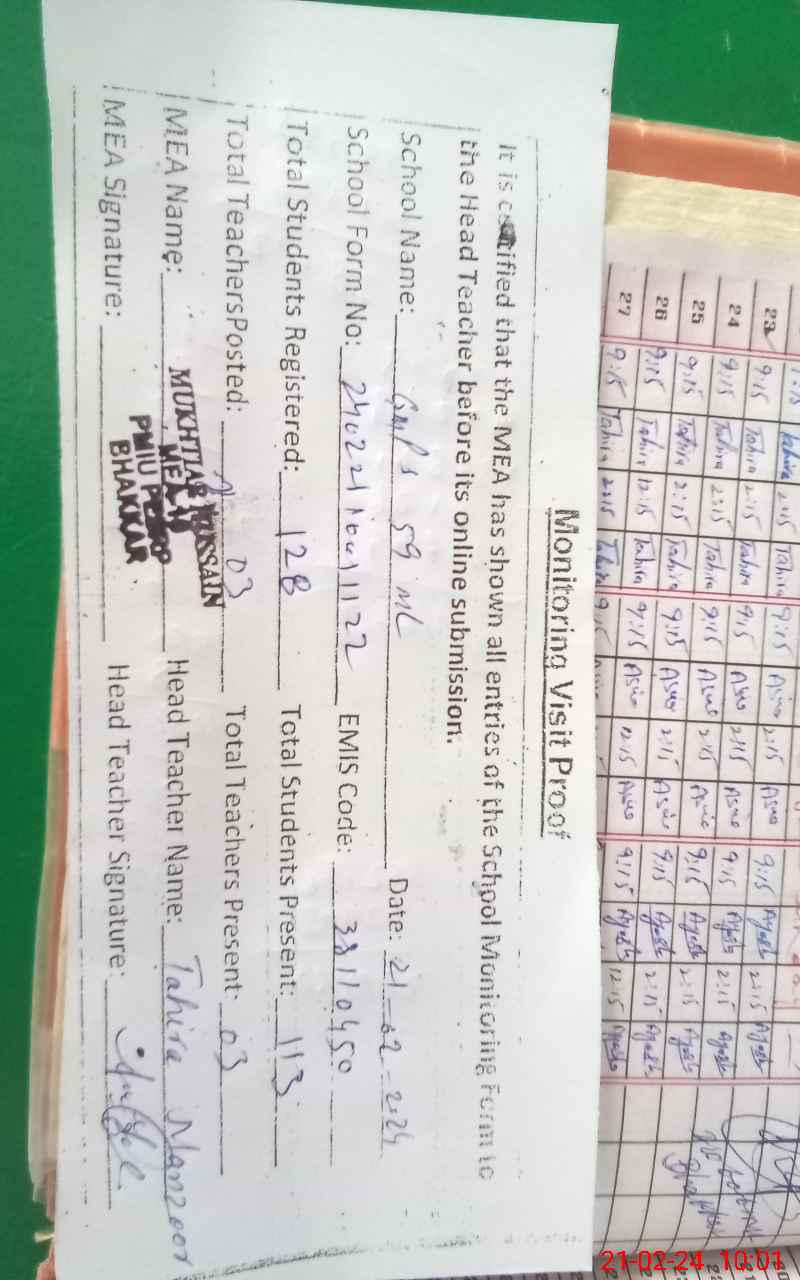 Monitoring Visit Proof
It is certified that the MEA has shown all entries of the School Monitoring Form to
the Head Teacher before its online submission.
School Name: GMPS 59 ML Date: 21-02-2024
School Form No: 24022110011122 EMIS Code: 38110450
Total Students Registered: 128 Total Students Present: 113
Total TeachersPosted: 03 Total Teachers Present: 03
MEA Name: MUKHTIAR HUSSAIN Head Teacher Name: Tahira Manzoor
MEA
PMIU
BHAKKAR
MEA Signature: Head Teacher Signature:
23 9:15 Tahira 2:15 Tahira 9:15 2:15 9:15 2:15
24 9:15 Tahira 2:15 Tahira 9:15 2:15 9:15 2:15
25 9:15 Tahira 2:15 Tahira 9:15 2:15 9:15 2:15
26 9:15 Tahira 12:15 Tahira 9:15 2:15 9:15 2:15
27 9:15 Tahira 2:15 Tahira 9:15 12:15 9:15 12:15
21-02-24 10:01